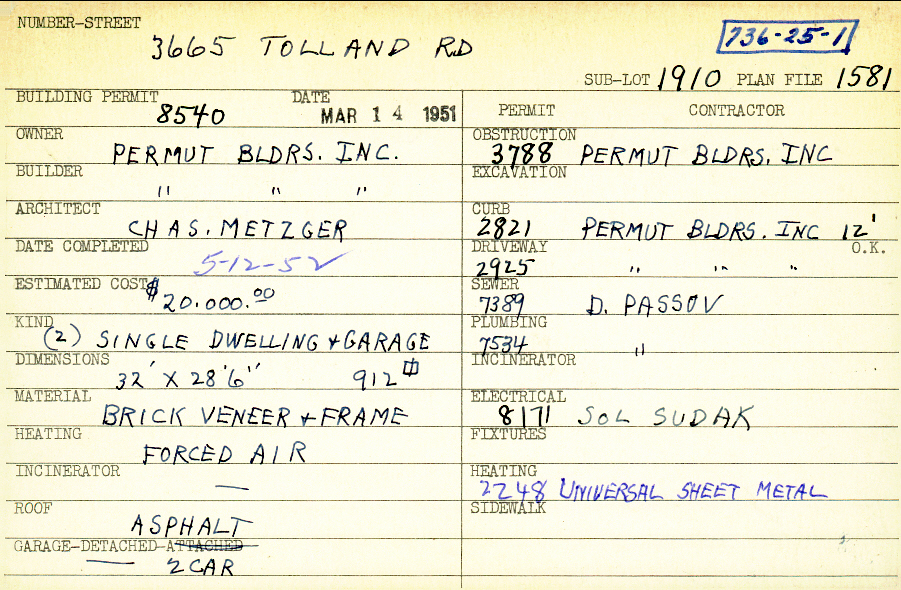 NUMBER-STREET
3665 TOLLAND RD
736-25-1
SUB-LOT 1910 PLAN FILE 1581
BUILDING PERMIT DATE
8540 MAR 14 1951
OWNER
PERMUT BLDRS. INC.
BUILDER
" " "
ARCHITECT
CHAS. METZGER
DATE COMPLETED
5-12-52
ESTIMATED COST
$20.000.00
KIND
(2) SINGLE DWELLING + GARAGE
DIMENSIONS
32' X 28'6" 912
MATERIAL
BRICK VENEER + FRAME
HEATING
FORCED AIR
INCINERATOR
—
ROOF
ASPHALT
GARAGE-DETACHED-ATTACHED
— 2 CAR
PERMIT CONTRACTOR
OBSTRUCTION
3788 PERMUT BLDRS. INC
EXCAVATION
CURB
2821 PERMUT BLDRS. INC 12'
DRIVEWAY O.K.
2925 " " "
SEWER
7389 D. PASSOV
PLUMBING
7534 "
INCINERATOR
ELECTRICAL
8171 SOL SUDAK
FIXTURES
HEATING
2248 UNIVERSAL SHEET METAL
SIDEWALK